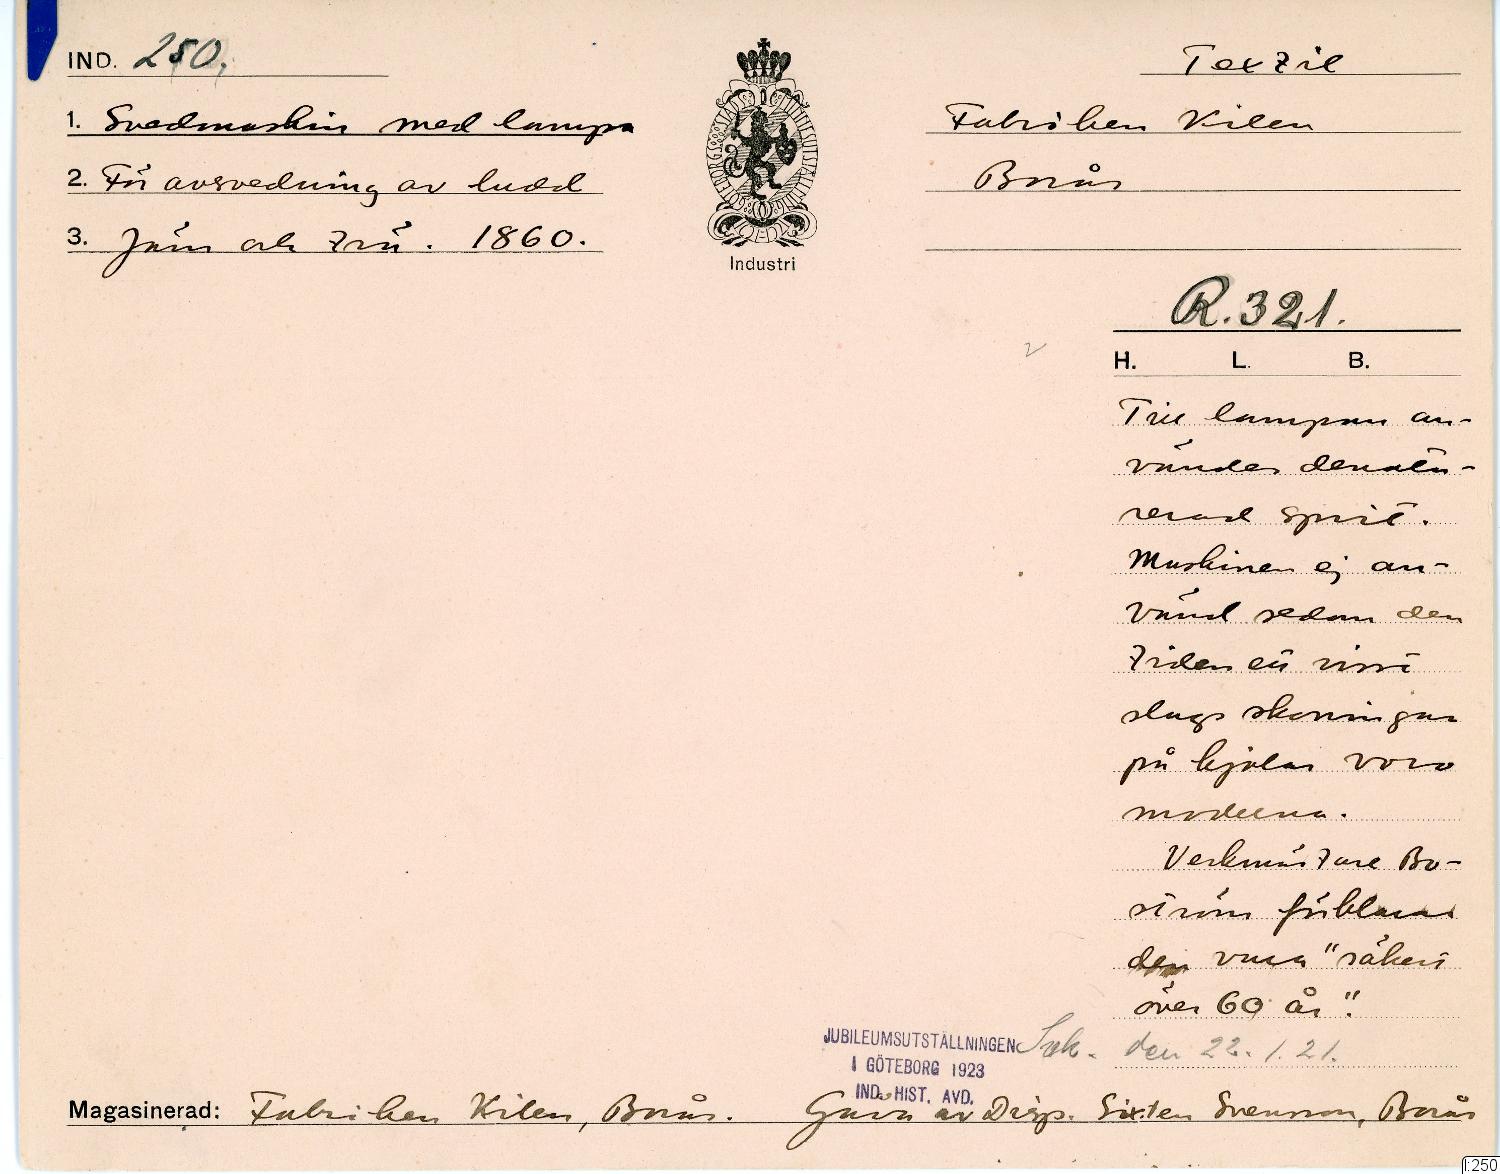 IND. 250.
Textil
1. Svedmaskin med lampa
Fabriken Kilen
2. För avsvedning av ludd
Borås
3. Järn och trä. 1860.
Industri
R. 321.
H. L. B.
Till lampan an-
vändes denatu-
rerad sprit.
Maskinen ej an-
vänd sedan den
tiden ett visst
slags skoningar
på kjolar voro
moderna.
Verkmästare Bo-
ström förklarar
den vara "säkert
över 60 år".
JUBILEUMSUTSTÄLLNINGEN
I GÖTEBORG 1923
IND. HIST. AVD.
den 22.1.21.
Magasinerad: Fabriken Kilen, Borås. Gåva av Disp. Sixten Svensson, Borås
I:250